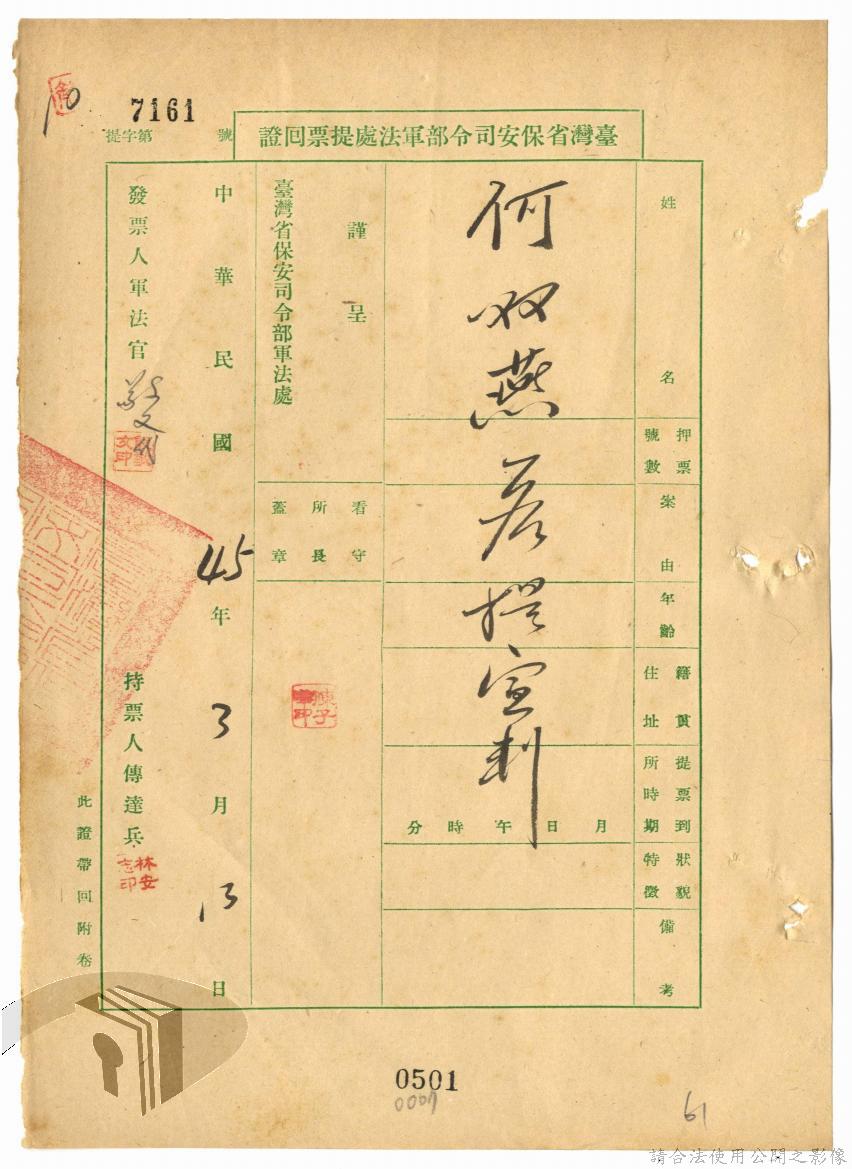 7161
提字第 號
臺灣省保安司令部軍法處提票回證
姓名
押票號數
案由
年齡
籍貫住址
提票到所時期
狀貌特徵
備考
何双燕君提宣判
月 日 午 時 分
謹呈
臺灣省保安司令部軍法處
看守所長蓋章
中華民國45年3月13日
發票人軍法官
持票人傳達兵
林安志印
此證帶回附卷
0501
61
請合法使用公開之影像